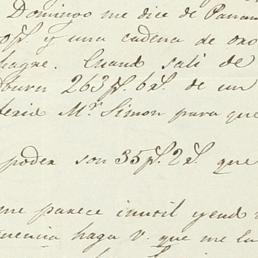 Domingo me dice de Panam
y una cadena de oro
hague. Cuand sali de
263 ps. 6 rs. de un
Mr. Simon para que
poder son 35 ps. 2 rs. que
me parece inutil yend
haga V. que me la